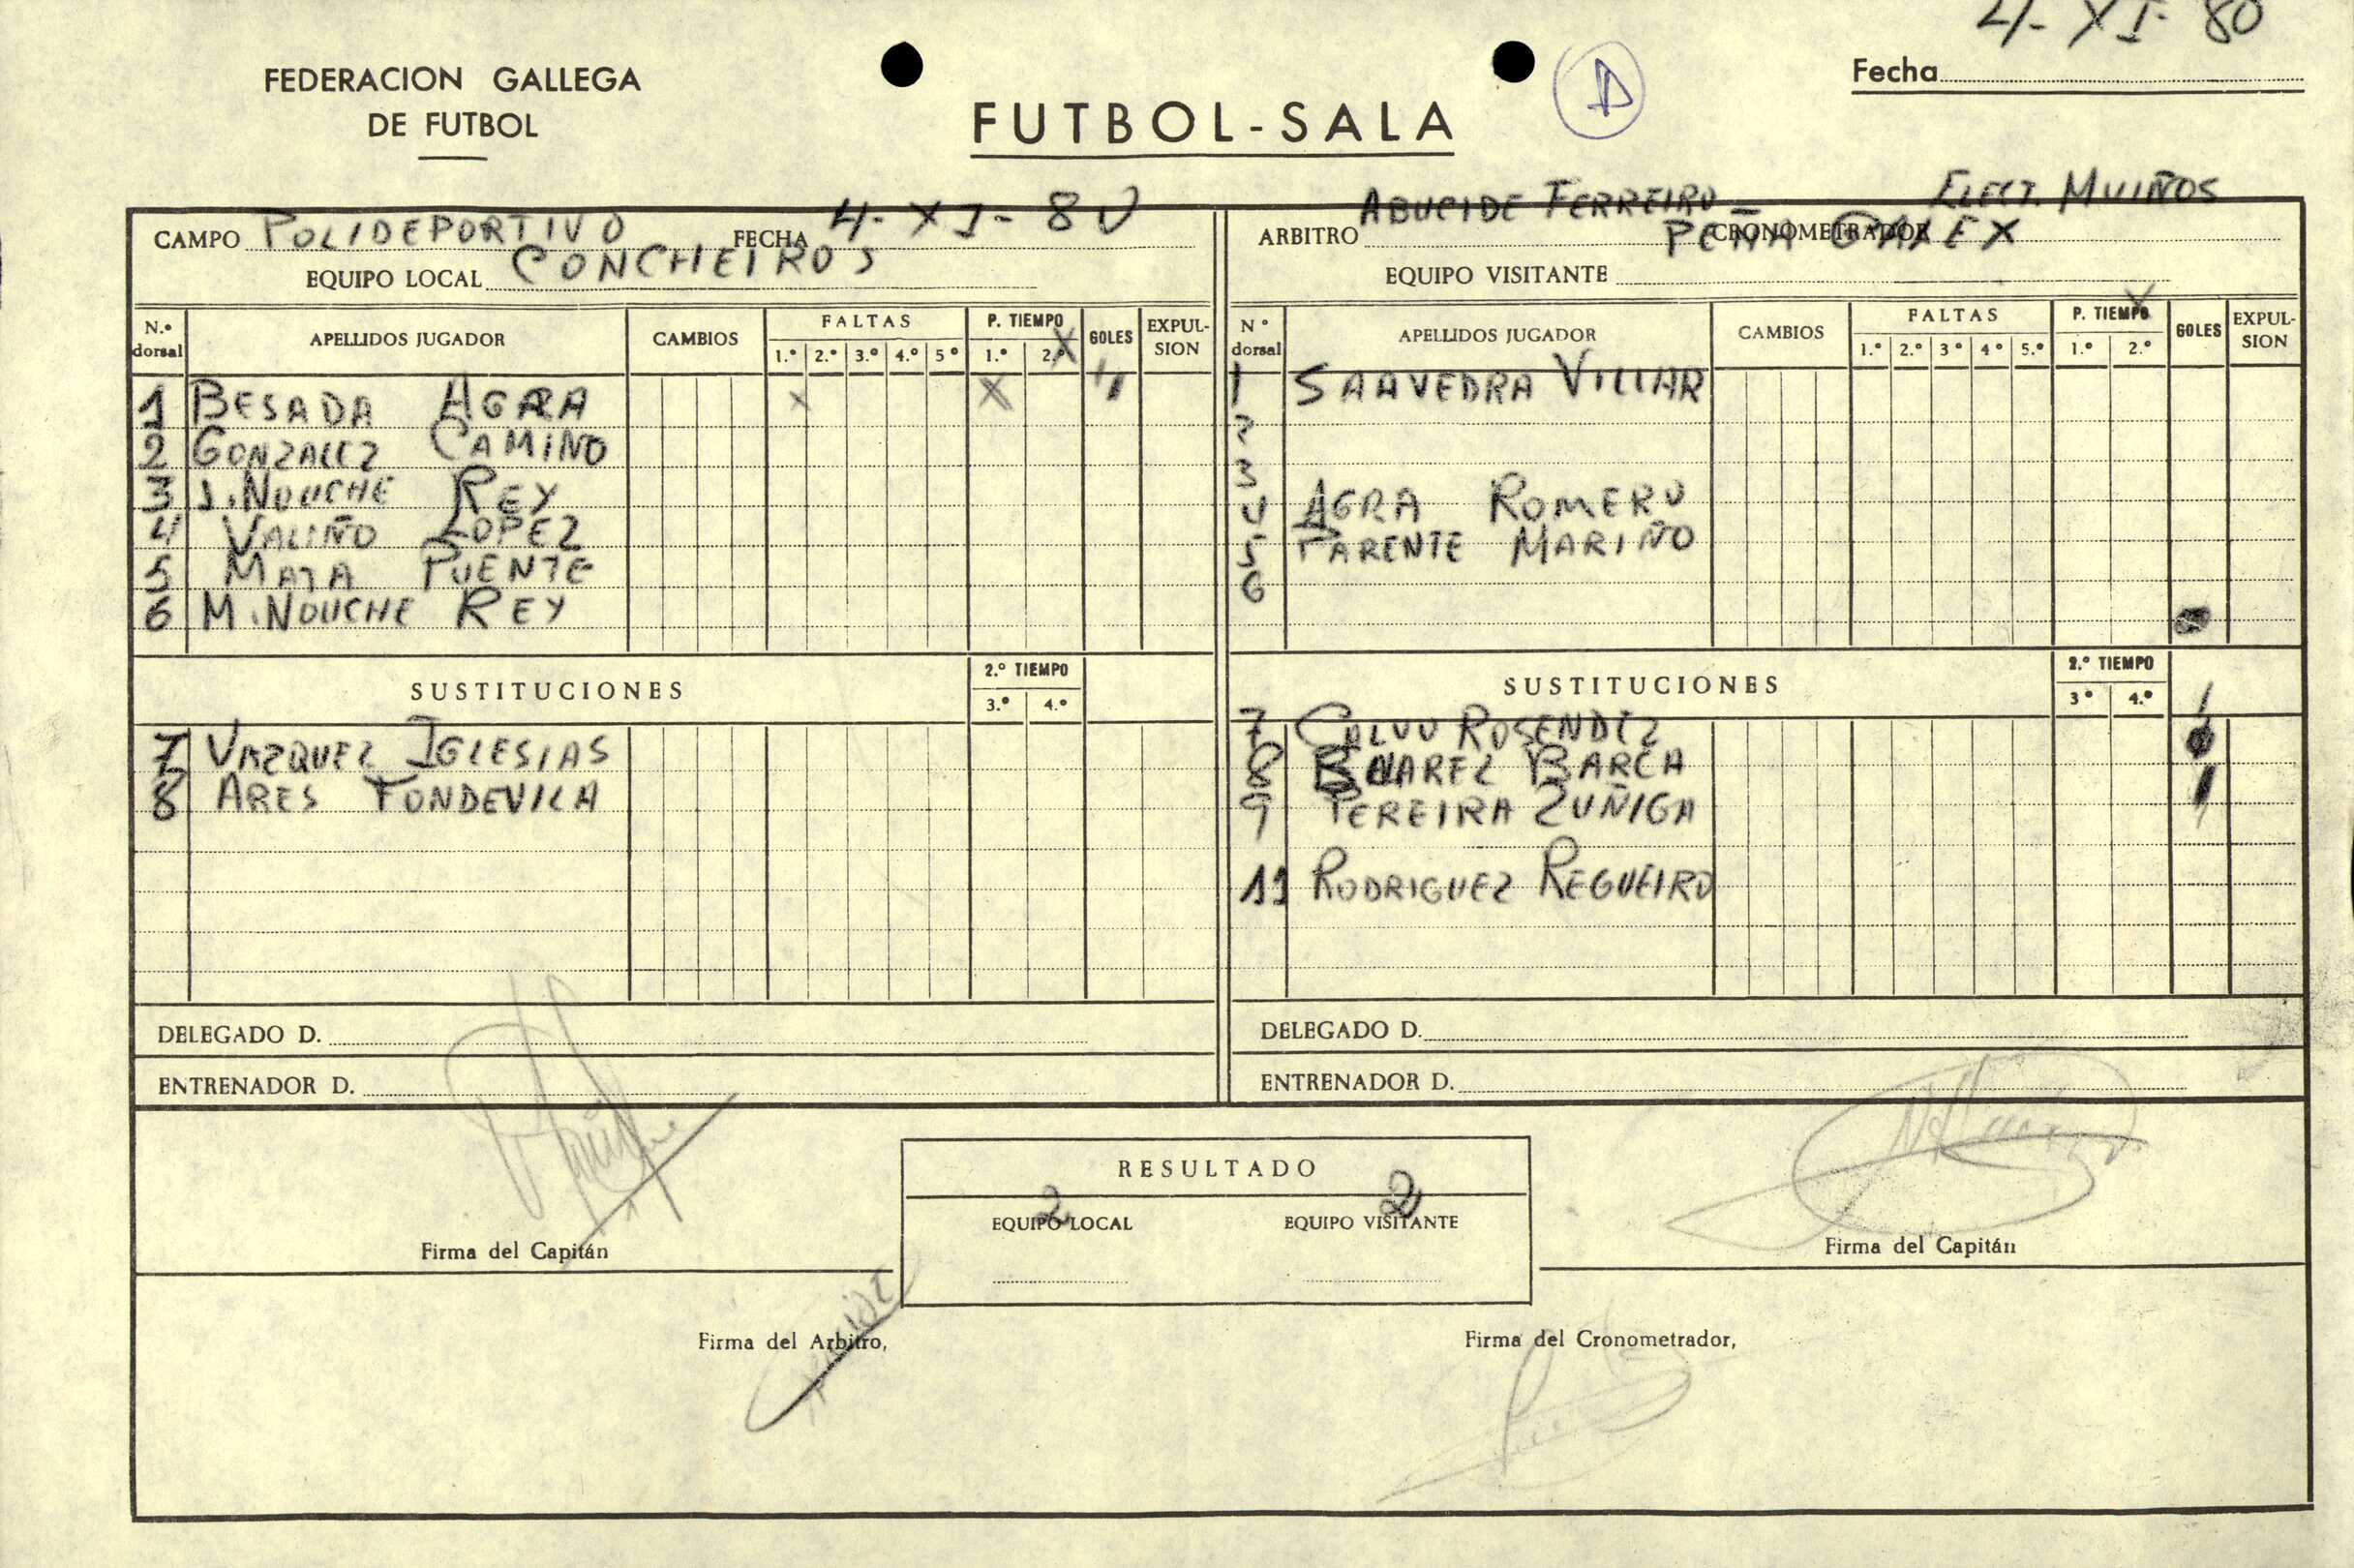 4-XI-80
FEDERACION GALLEGA
DE FUTBOL
Fecha
FUTBOL-SALA
CAMPO POLIDEPORTIVO FECHA 4-XI-80
EQUIPO LOCAL CONCHEIROS
ARBITRO FERREIRO CRONOMETRADOR ELECT. MUIÑOS
EQUIPO VISITANTE PEÑA GALEX
N.º dorsal APELLIDOS JUGADOR CAMBIOS FALTAS P. TIEMPO GOLES EXPULSION
1.º 2.º 3.º 4.º 5º 1.º 2.º
1 BESADA AGRA X X 11
2 GONZALEZ CAMINO
3 J. NOUCHE REY
4 VALIÑO LOPEZ
5 MATA PUENTE
6 M. NOUCHE REY
SUSTITUCIONES 2.º TIEMPO
3.º 4.º
7 VAZQUEZ IGLESIAS
8 ARES FONDEVILA
DELEGADO D.
ENTRENADOR D.
Nº dorsal APELLIDOS JUGADOR CAMBIOS FALTAS P. TIEMPO GOLES EXPULSION
1.º 2.º 3º 4º 5.º 1.º 2.º
1 SAAVEDRA VILLAR
2
3
4 AGRA ROMERO
5 PARENTE MARIÑO
6
SUSTITUCIONES 2.º TIEMPO
3º 4.º
7 CALVO ROSENDEZ
8 BARCA
9 PEREIRA ZUÑIGA
11 RODRIGUEZ REGUEIRO
DELEGADO D.
ENTRENADOR D.
RESULTADO
2 2
EQUIPO LOCAL EQUIPO VISITANTE
Firma del Capitán
Firma del Capitán
Firma del Arbitro,
Firma del Cronometrador,